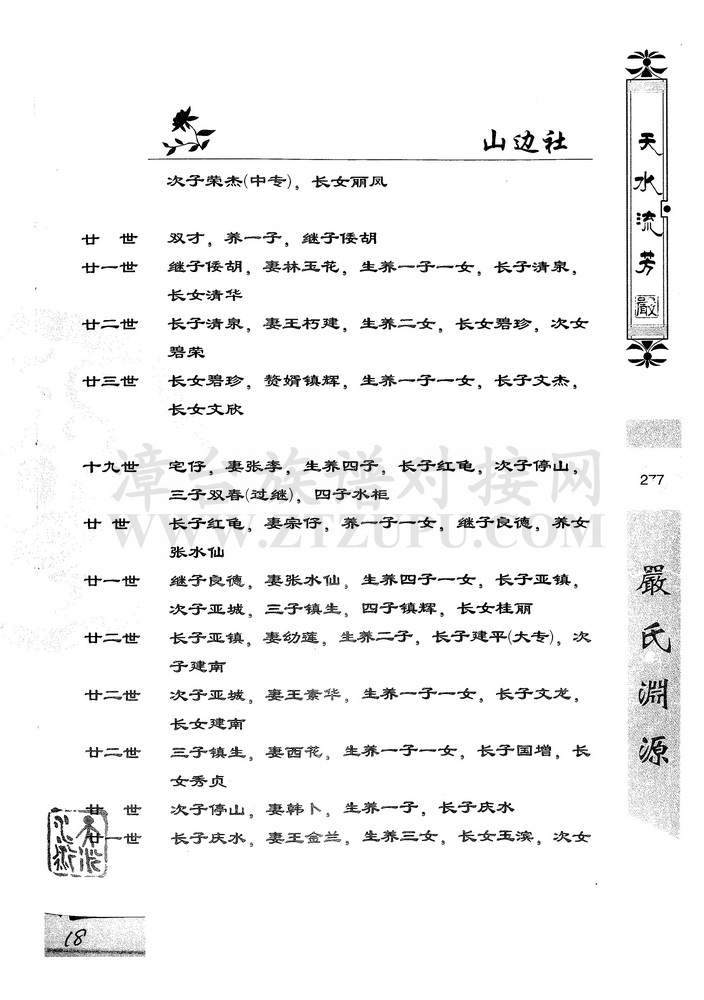 山边社
次子荣杰(中专)，长女丽风
廿 世 双才，养一子，继子倭胡
廿一世 继子倭胡，妻林玉花，生养一子一女，长子清泉，
长女清华
廿二世 长子清泉，妻王朽建，生养二女，长女碧珍，次女
碧荣
廿三世 长女碧珍，赘婿镇辉，生养一子一女，长子文杰，
长女文欣
十九世 宅仔，妻张李，生养四子，长子红龟，次子停山，
三子双春(过继)，四子水柜
廿 世 长子红龟，妻宗仔，养一子一女，继子良德，养女
张水仙
廿一世 继子良德，妻张水仙，生养四子一女，长子亚镇，
次子亚城，三子镇生，四子镇辉，长女桂丽
廿二世 长子亚镇，妻幼莲，生养二子，长子建平(大专)，次
子建南
廿二世 次子亚城，妻王素华，生养一子一女，长子文龙，
长女建南
廿二世 三子镇生，妻西花，生养一子一女，长子国增，长
女秀贞
廿 世 次子停山，妻韩卜，生养一子，长子庆水
廿一世 长子庆水，妻王金兰，生养三女，长女玉滨，次女
天水流芳
嚴
277
嚴氏淵源
18
漳台族谱对接网
WWW.ZTZUPU.COM